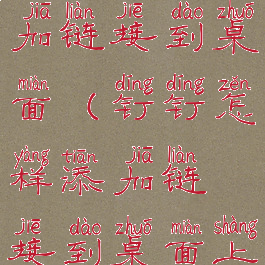 jiā liàn jiē dào zhuō
加链接到桌
miàn dīng dīng zěn
面（钉钉怎
yàng tiān jiā liàn
样添加链
jiē dào zhuō miàn shàng
接到桌面上